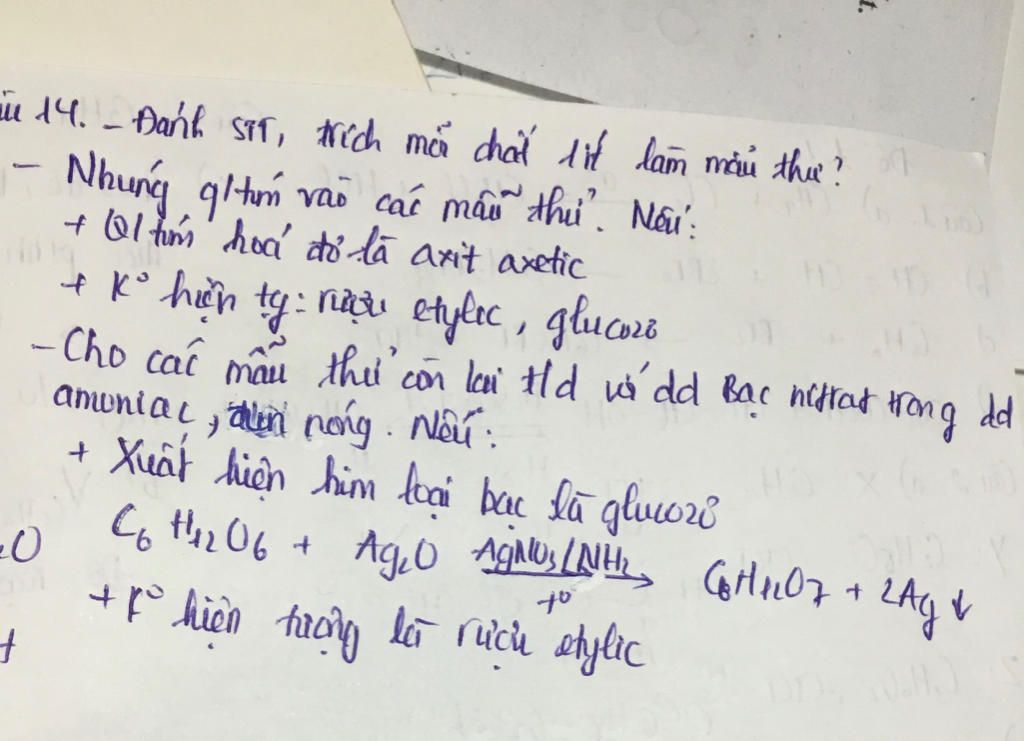 14. - Đánh STT, trích mỗi chất 1 ít làm mẫu thử?
- Nhúng q/tím vào các mẫu thử. Nếu:
+ Q/tím hoá đỏ là axit axetic
+ K° hiện tg: rượu etylic, glucozơ
- Cho các mẫu thử còn lại t/d với dd Bạc nitrat trong dd
amoniac, nóng. Nếu:
+ Xuất hiện kim loại bạc là glucozơ
O C6H12O6 + Ag2O AgNO3/NH3 t° C6H12O7 + 2Ag ↓
+ K° hiện tượng là rượu etylic